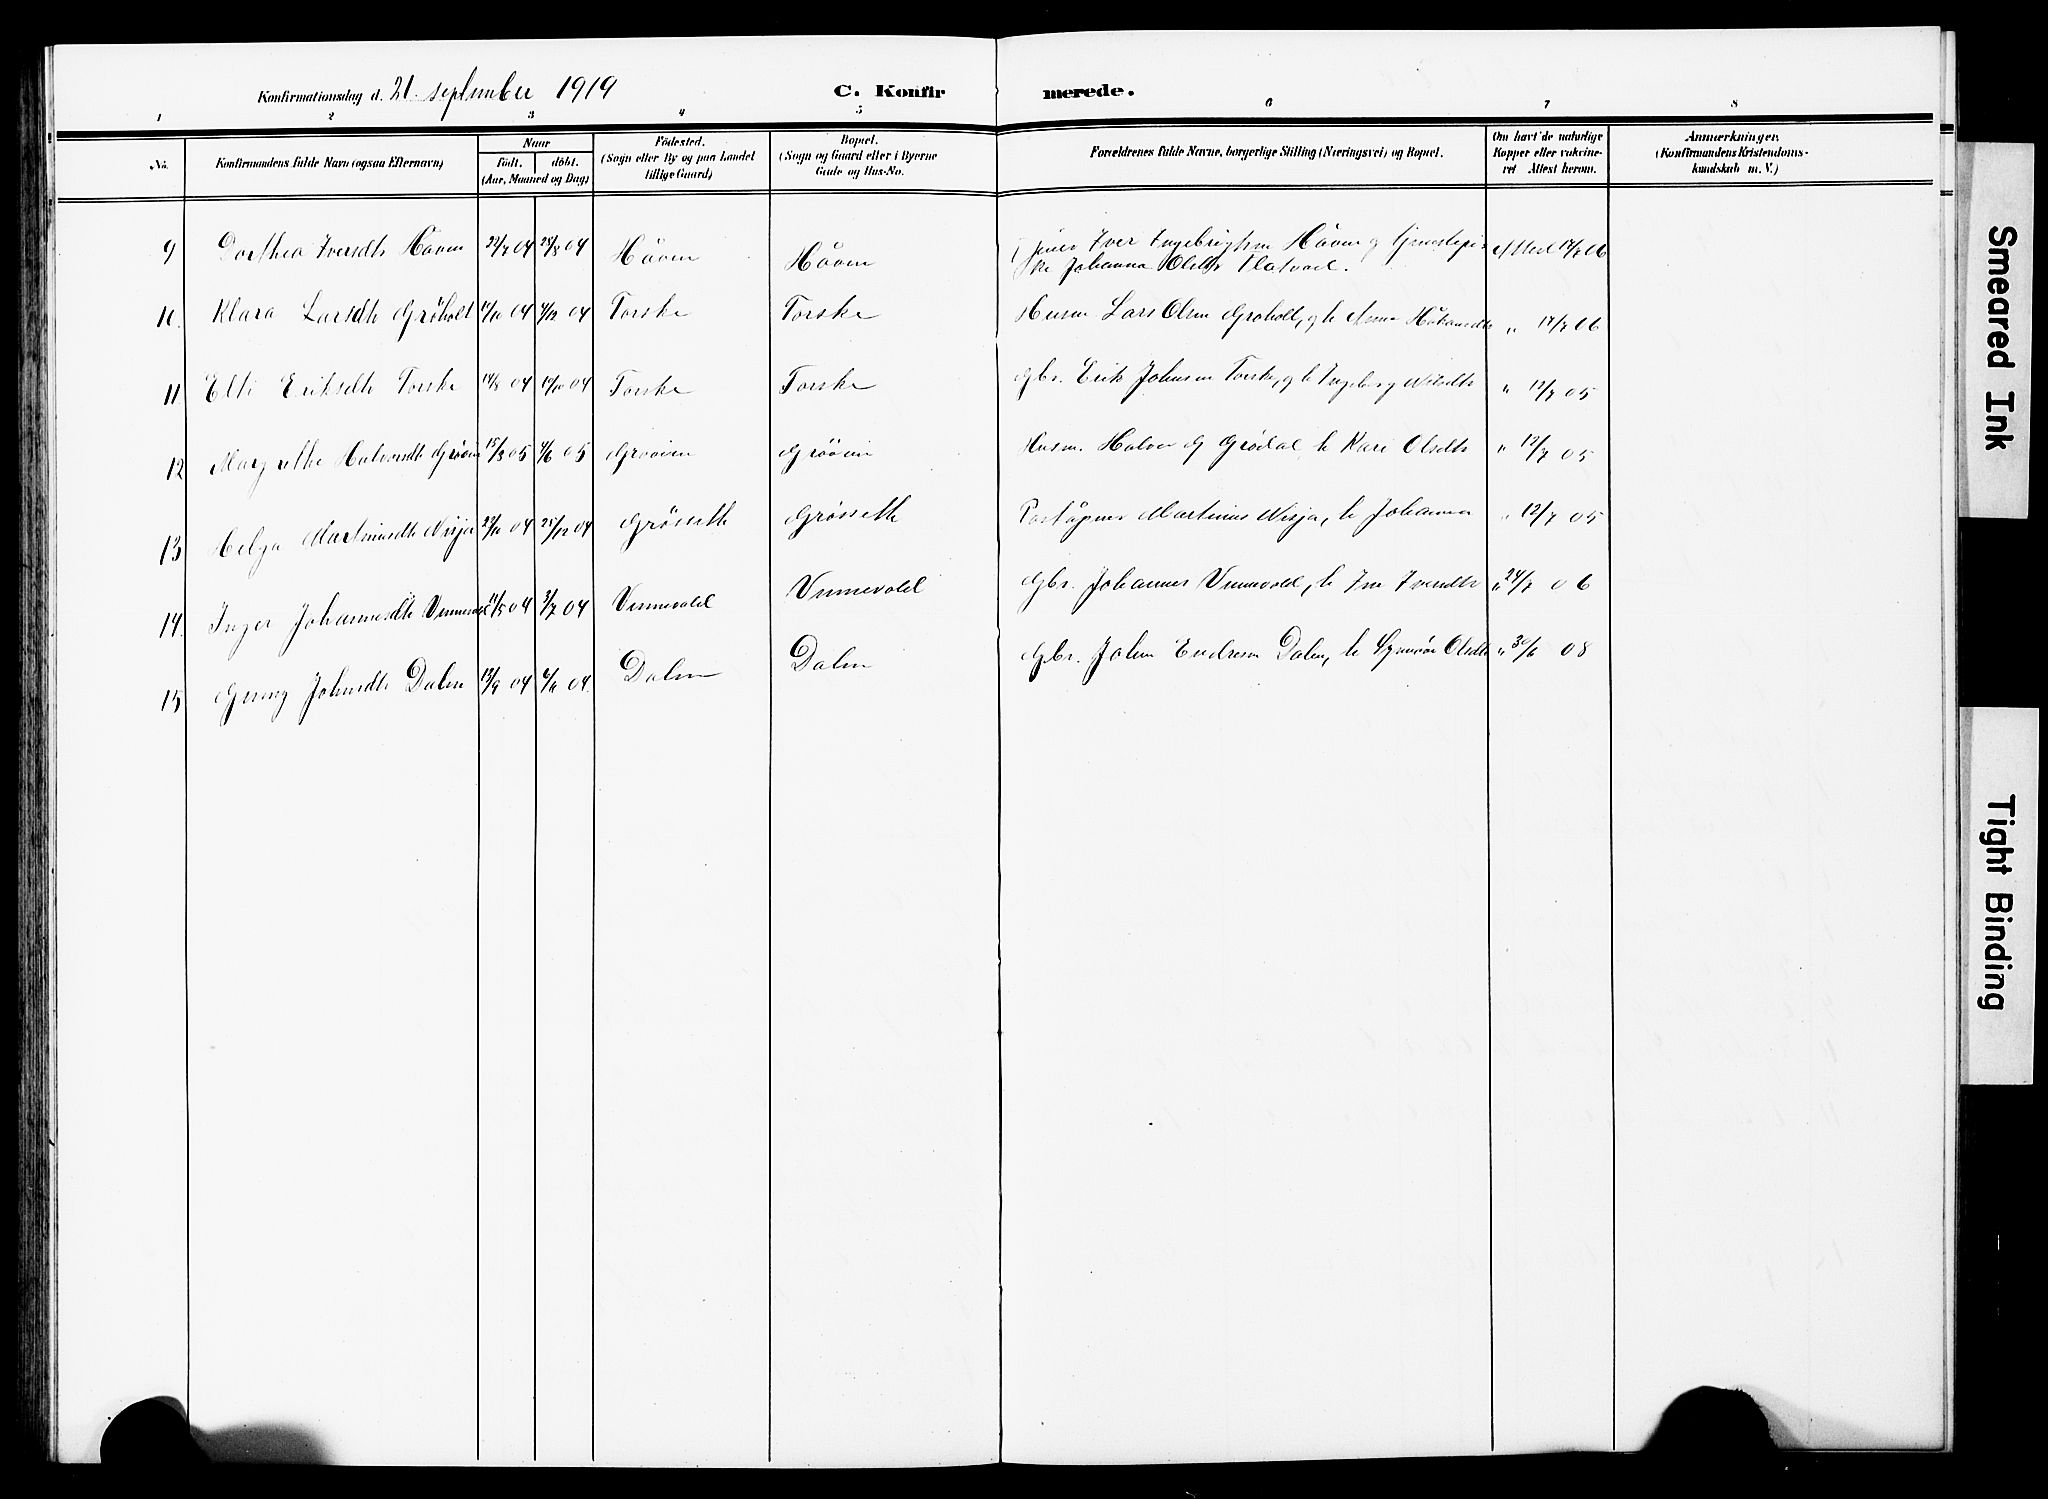 Konfirmationsdag d. 21. september 1919 C. Konfir merede.
1 2 3 4 5 6 7 8
No. Konfirmandens fulde Navn (ogsaa Efternavn) Naar Födt. döbt. (Aar, Maaned og Dag) Födested. (Sogn eller By og paa Landet tillige Gaard) Bopæl. (Sogn og Gaard eller i Byerne Gade og Hus-No. Forældrenes fulde Navne, borgerlige Stilling (Næringsvei) og Bopæl. Om havt de naturlige Kopper eller vakcineret Attest herom. Anmærkninger. (Konfirmandens Kristendomskundskab m. V.)
9 Dorthea Iversdtr Haaven 04 28/8 04 Haaven Haaven Iver Ingebrigtsen Haaven og
Johanna Olsdtr Flatvad. Attest 17/7 06
10. Klara Larsdtr Gröholt 14/10 04 4/12 04 Torske Torske Husm. Lars Olsen Groholt, og h Anna Håkonsdtr " 17/7 06
11 Eli Eriksdtr Torske 14/8 04 14/10 04 Torske Torske Gbr. Erik Johnsen Torske, og h Ingeborg Nilsdtr " 12/7 05
12 Margrethe Halvorsdtr Grööen 15/3 05 4/6 05 Grööen Grööen Husm. Halvor G Grödal, h Kari Olsdtr " 12/7 05
13 Helga Martinusdtr Nisja 22/10 04 25/12 04 Grössette Grössette Poståpner Martinus Nisja, h Johanna " 12/7 05
14. Inger Johannesdtr Vinnevold 11/5 04 3/7 04 Vinnevold Vinnevold Gbr. Johannes Vinnevold, h Iversdtr " 24/7 06
15 Johnsdtr Dalen 13/9 04 6/11 04. Dalen Dalen Gbr. John Endresen Dalen, h Synnöv Olsdtr " 30/6 08
Smeared Ink
Tight Binding